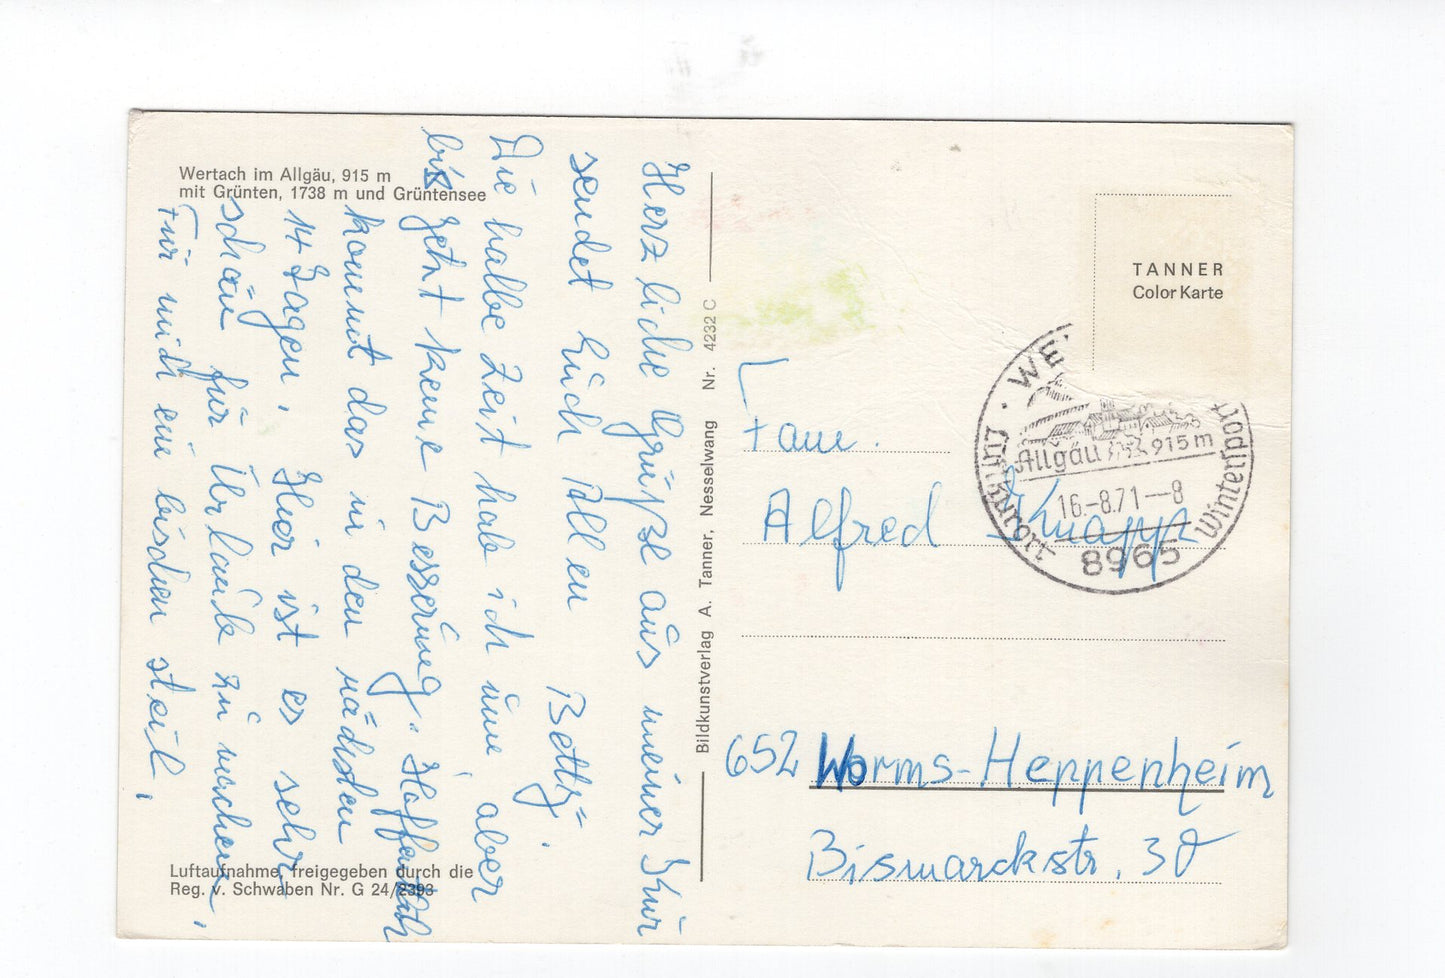 Wertach im Allgäu, 915 m
mit Grünten, 1738 m und Grüntensee
Herzliche Grüße aus meiner Kur
sendet Euch Allen
Betty.
Die halbe Zeit hab ich um aber
bis jetzt keine Besserung. Hoffentlich
kommt das in den nächsten
14 Tagen. Hier ist es sehr
schön für Urlaub zu machen,
Für mich ein bischen steil.
Luftaufnahme, freigegeben durch die
Reg. v. Schwaben Nr. G 24/2393
Bildkunstverlag A. Tanner, Nesselwang Nr. 4232 C
TANNER
Color Karte
WE
Luftkurort
Winterdorf
Allgäu 915 m
16.-8.71-8
8965
Fam.
Alfred Knapp
652 Worms-Heppenheim
Bismarckstr. 30